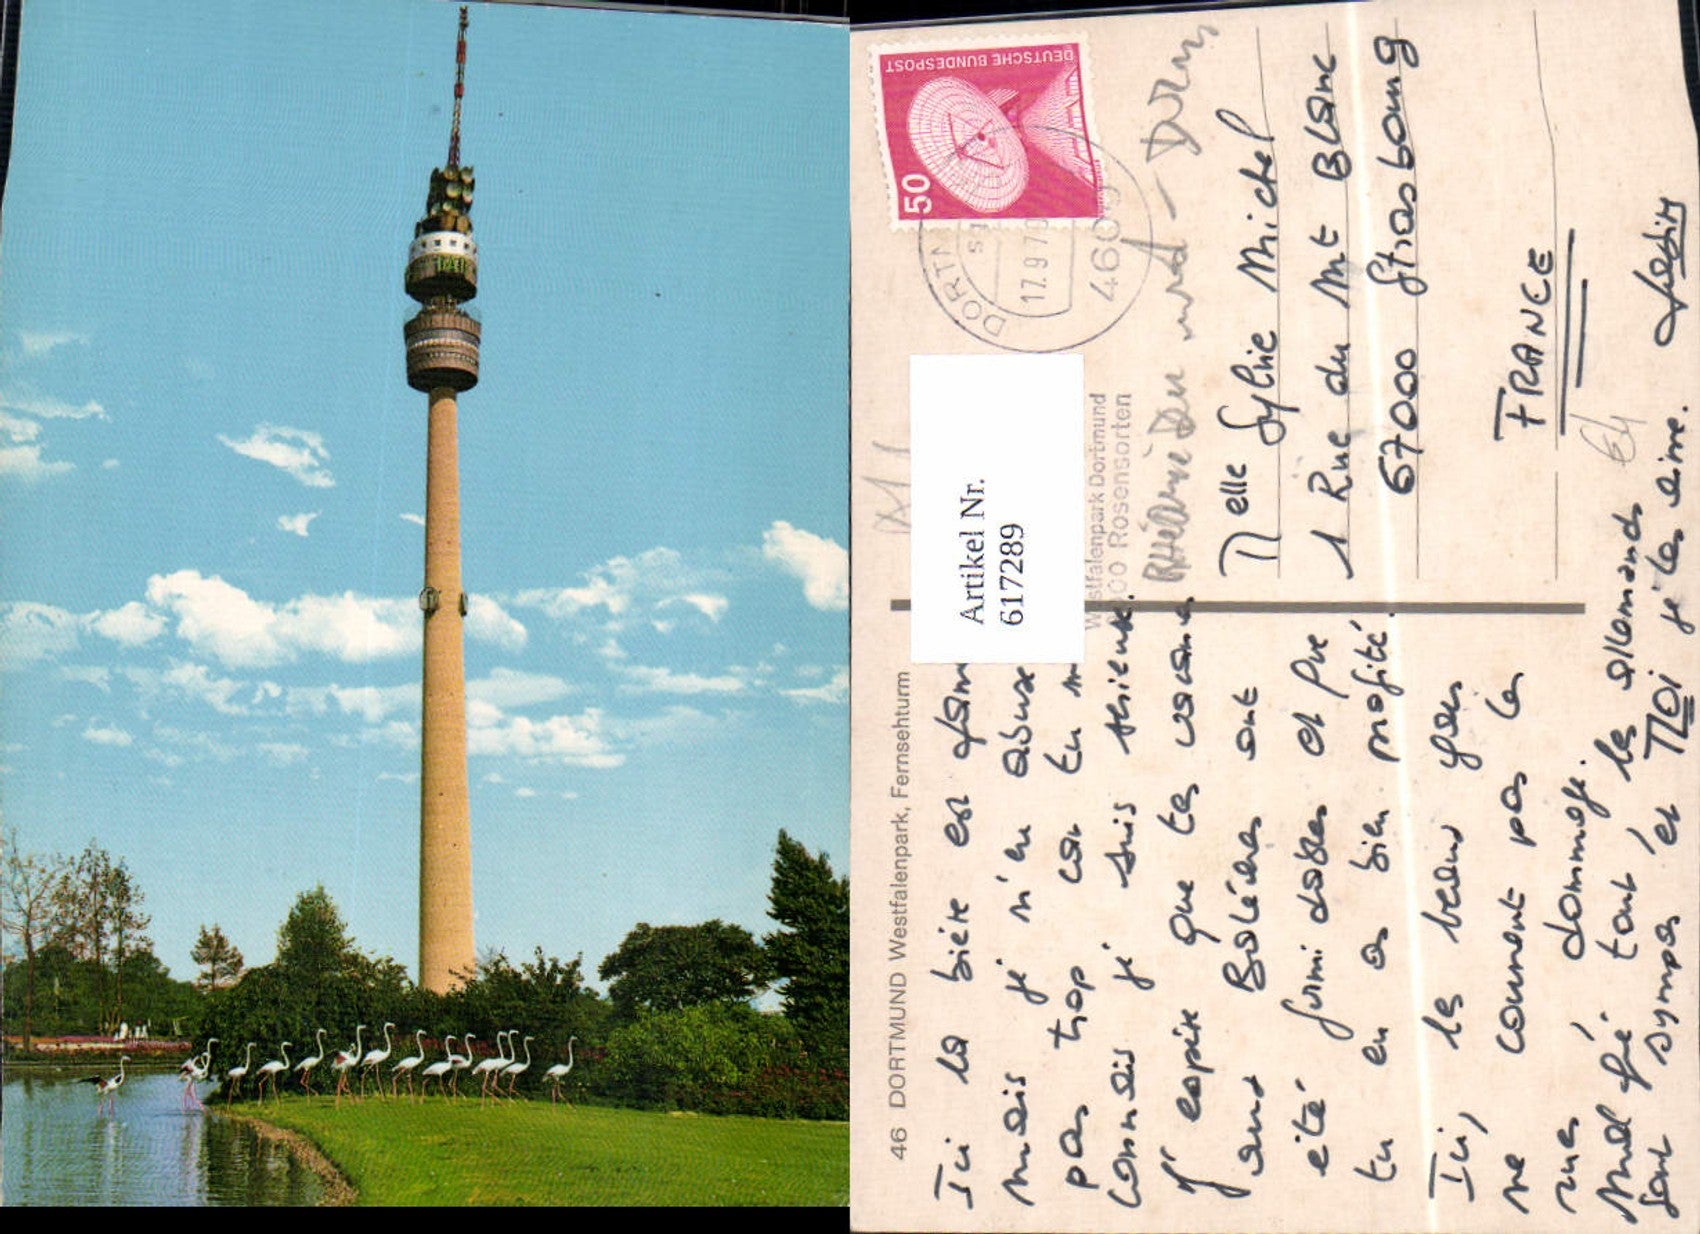 46 DORTMUND Westfalenpark, Fernsehturm
Ici la bière est
mais je n'en abuse
pas trop car tu m
connais je suis sérieuse.
J'espère que tes vacances
aux Baléares ont
été formidables et que
tu en as bien profité.
Ici, les beaux yeux
ne courent pas les
rues, dommage.
Malgré tout, les allemands
sont sympas et MOI je les aime.
DEUTSCHE BUNDESPOST
50
DORTM
17.9.7
4600
Westfalenpark Dortmund
Rosensorten
Artikel Nr.
617289
Melle Sylvie Michel
1 Rue du Mt Blanc
67000 Strasbourg
FRANCE